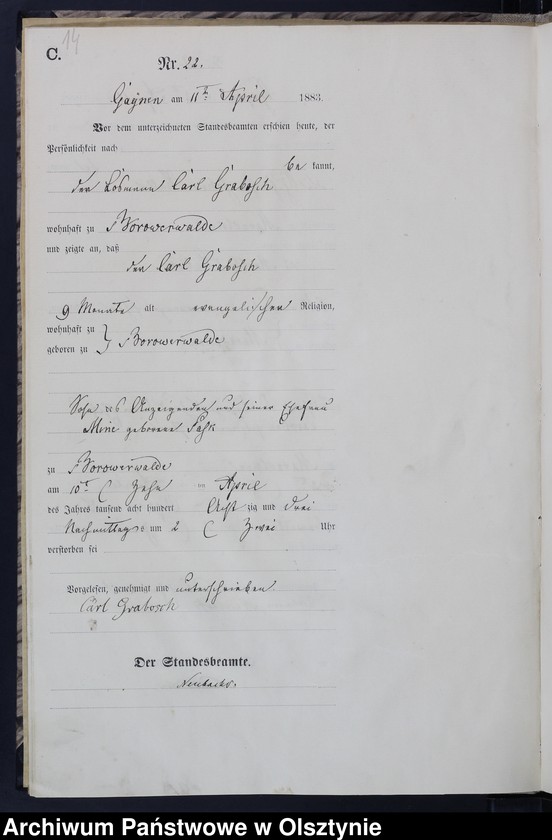 C.
14
Nr. 22.
Gaynen am 11ten April 1883.
Vor dem unterzeichneten Standesbeamten erschien heute, der
Persönlichkeit nach
be kannt,
der Losmann Carl Grabosch
wohnhaft zu Borowerwalde
und zeigte an, daß
der Carl Grabosch
9 Monate alt evangelischer Religion,
wohnhaft zu
geboren zu } Borowerwalde
Sohn des Anzeigenden und seiner Ehefrau
Mine geborene
zu Borowerwalde
am 10t ( Zehn April
des Jahres tausend acht hundert Acht zig und drei
Nachmittags um 2 ( Zwei Uhr
verstorben sei
Vorgelesen, genehmigt und unterschrieben
Carl Grabosch
Der Standesbeamte.
Archiwum Państwowe w Olsztynie